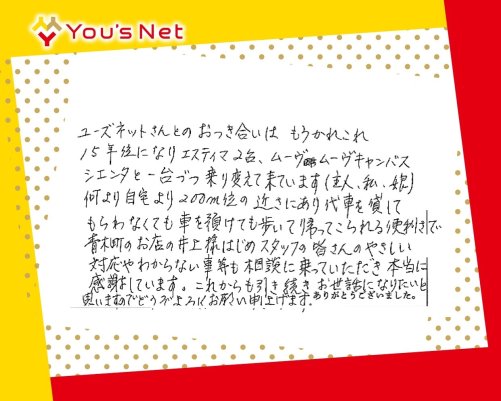 You's Net
ユーズネットさんとのおつき合いは もうかれこれ
15年位になり エスティマ2台、ムーヴ ムーヴキャンバス
シエンタと一台づつ乗り変えて来ています(主人、私、娘)
何より自宅より200m位の近さにあり代車を貸して
もらわなくても車を預けても歩いて帰ってこられる便利さで
青木町のお店の井上様はじめスタッフの皆さんのやさしい
対応やわからない事等も相談に乗っていただき本当に
感謝しています。これからも引き続きお世話になりたいと
思いますのでどうぞよろしくお願い申上げます。ありがとうございました。